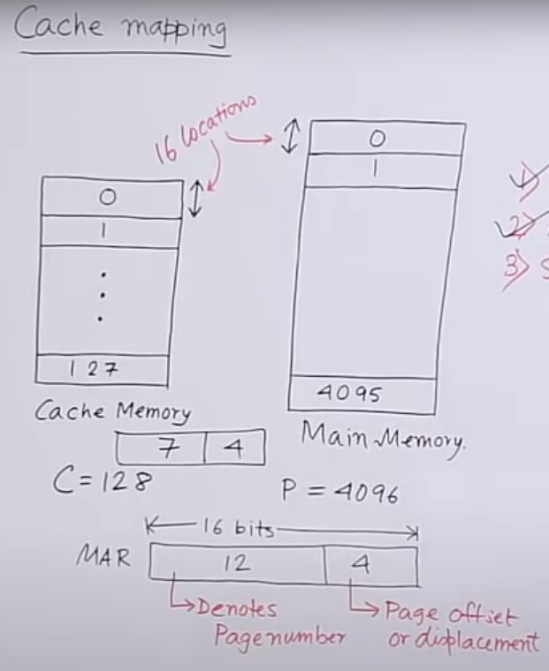 Cache mapping
16 locations
0
1
127
Cache Memory
7 4
C=128
0
1
4095
Main Memory.
P = 4096
1)
2)
3) S
16 bits
MAR 12 4
Denotes
Page number
Page offset
or displacement